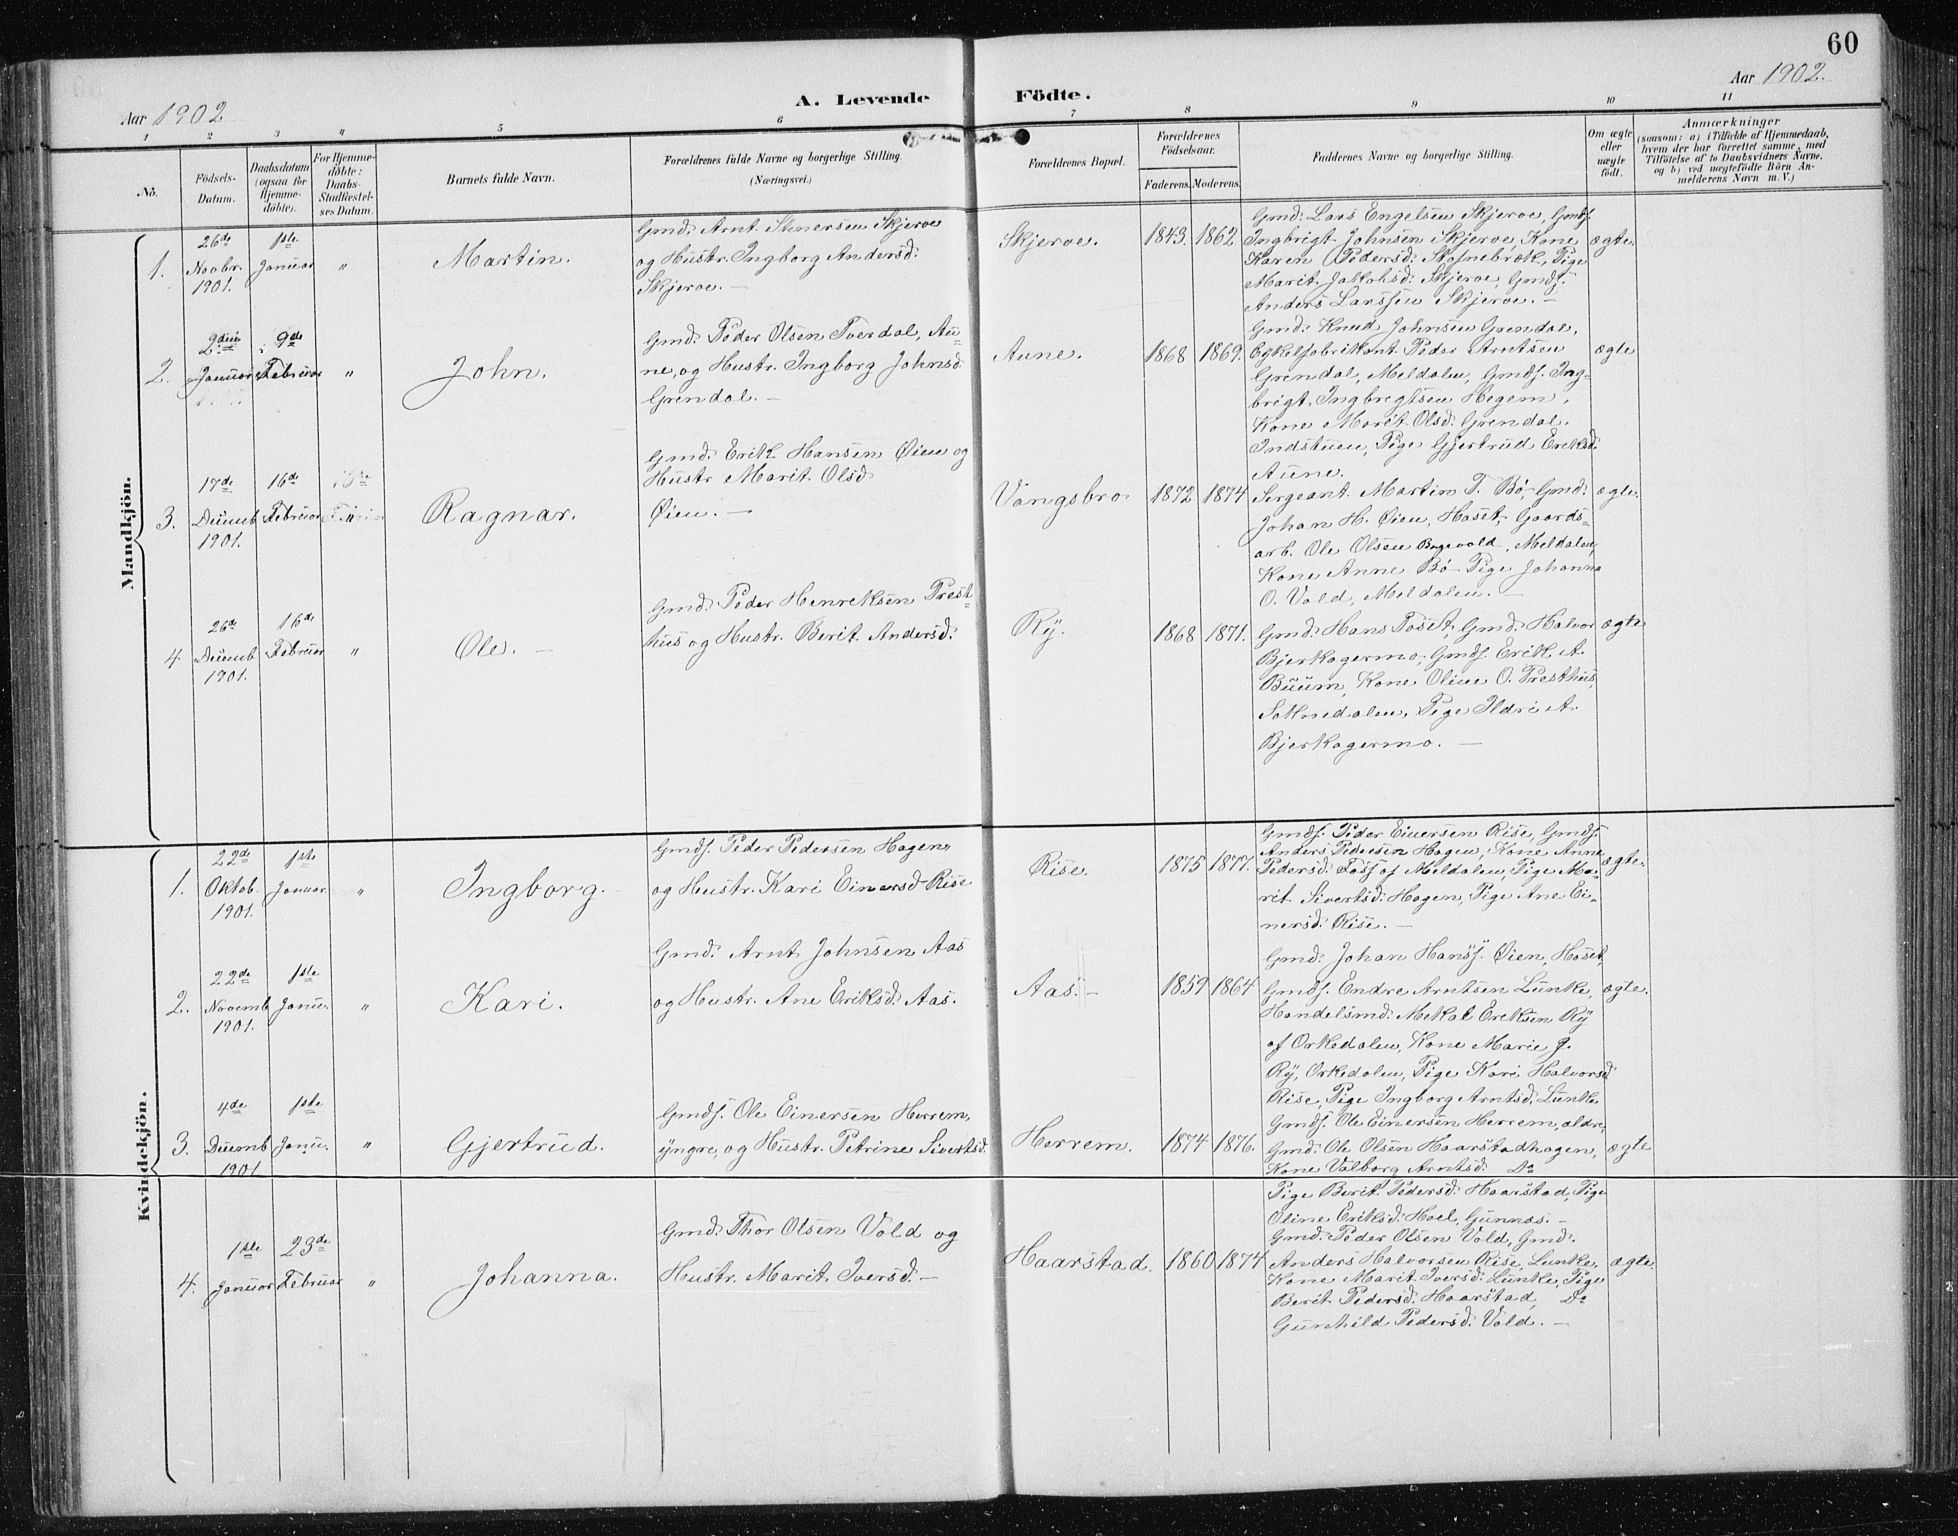 60
Aar 1902
A. Levende Födte.
Aar 1902.
1 2 3 4 5 6 7 8 9 10 11
No.
Födsels-
Datum.
Daabsdatum
(ogsaa for
Hjemme-
döbte).
For Hjemme-
döbte:
Daabs-
Stadfæstel-
ses Datum.
Barnets fulde Navn.
Forældrenes fulde Navne og borgerlige Stilling.
(Næringsvei.)
Forældrenes Bopæl.
Forældrenes
Födselsaar.
Faderens. Moderens.
Faddernes Navne og borgerlige Stilling.
Om ægte
eller
uægte
födt.
Anmærkninger
(saasom: a) i Tilfælde af Hjemmedaab,
hvem der har forrettet samme, med
Tilföielse af to Daabsvidners Navne,
og b) ved uægtefödte Börn An-
melderens Navn m. V.)
Mandkjön.
1.
26de
Novbr.
1901.
1ste
Januar
"
Martin.
Gmd. Arnt Stenersen Skjerve
og Hustr. Ingborg Andersd.
Skjerve. —
Skjerve.
1843. 1862
Gmd. Lars Engelsen Skjerve, Gmds.
Ingbrigt Johnsen Skjerve, Kone
Karen Pedersd. Stofnebræk, Pige
Marit Jakobsd. Skjerve, Gmds.
Anders Larssen Skjerve. —
ægte.
2.
2den
Januar
9de
Februar
"
John.
Gmd. Peder Olsen Tverdal, Au-
ne, og Hustr. Ingborg Johnsd.
Grendal. —
Aune.
1868 1869.
Gmd. Knud Johnsen Grendal,
Cykelfabrikant Peder Arntsen
Grendal, Meldalen, Gmds. Ing-
brigt Ingbrigtsen Hegem,
Kone Marit Olsd. Grendal.
Indstuen, Pige Gjertrud Eriksd.
Aune.
ægte
3.
17de
Decemb.
1901.
16de
Februar
"
Ragnar.
Gmd. Erik Hansen Øien og
Hustr. Marit Olsd.
Øien. —
Vangsbro.
1872 1874
Sergeant Martin T. Bö, Gmd.
Johan H. Øien, Hoset, Gaards-
arb. Ole Olsen Bogevold, Meldalen,
Kone Anne Bö, Pige Johanna
O. Vold, Meldalen. —
ægte.
4
26de
Decemb.
1901.
16de
Februar
"
Ole. —
Gmd. Peder Henriksen Prest-
hus og Hustr. Berit Andersd.
Ry.
1868 1871.
Gmd. Hans Toset, Gmd. Halvor
Bjerkagermo, Gmds. Erik A.
Buum, Kone Oline O. Presthus,
Soknedalen, Pige Ildri A.
Bjerkagermo. —
ægte
Kvindekjön.
1.
22de
Oktob.
1901.
1ste
Januar
"
Ingborg.
Gmds. Peder Pedersen Hagen
og Hustr. Kari Einersd. Rise
Rise.
1875 1877.
Gmds. Peder Einersen Rise, Gmds.
Anders Pedersen Hagen, Kone Anne
Pedersd. Foss af Meldalen, Pige Ma-
rit Sivertsd. Hagen, Pige Ane Ei-
nersd. Rise. —
ægte.
2.
22de
Novemb.
1901.
1ste
Janu.
"
Kari.
Gmd. Arnt Johnsen Aas
og Hustr. Ane Eriksd. Aas.
Aas. —
1859 1864
Gmd. Johan Hanss. Øien, Hoset,
Gmds. Endre Arntsen Lunke,
Handelsmd. Mekal Ereksen Ry
af Orkedalen, Kone Marie J.
Ry, Orkedalen, Pige Kari Halvorsd.
Rise, Pige Ingborg Arntsd. Lunke
ægte.
3.
4de
Decemb.
1901
1ste
Janu.
"
Gjertrud.
Gmds. Ole Einersen Herrem,
yngre, og Hustr. Petrine Sivertsd.
Herrem.
1874 1876.
Gmds. Ole Einersen Herrem, ældre,
Gmd. Ole Olsen Haarstadhagen,
Kone Valborg Arntsd. Do
Pige Berit Pedersd. Haarstad, Pige
Oline Eriksd. Hoel, Gunnæs. —
ægte
4.
1ste
Januar
23de
Februar
"
Johanna.
Gmd. Thor Olsen Vold og
Hustr. Marit Iversd. —
Haarstad.
1860 1874
Gmd. Peder Olsen Vold, Gmd.
Anders Halvorsen Rise, Lunke,
Kone Marit Iversd. Lunke, Pige
Berit Pedersd. Haarstad, Do
Gunhild Pedersd. Vold. —
ægte.